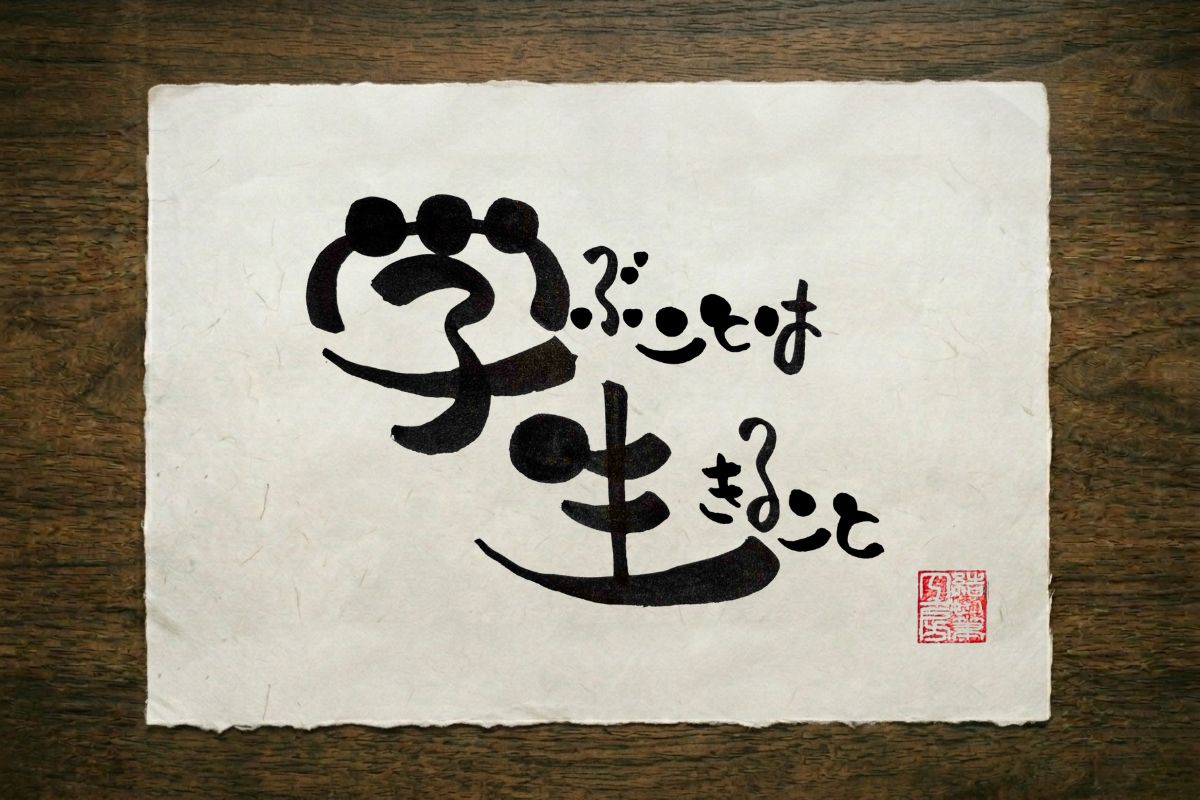 学ぶことは
生きること